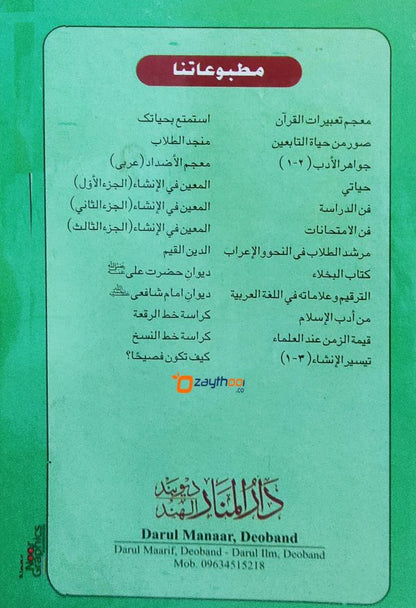 مطبوعاتنا
معجم تعبيرات القرآن
صور من حياة التابعين
جواهر الأدب (٢-١)
حياتي
فن الدراسة
فن الامتحانات
مرشد الطلاب في النحو والإعراب
كتاب البخلاء
الترقيم وعلاماته في اللغة العربية
من أدب الإسلام
قيمة الزمن عند العلماء
تيسير الإنشاء (٣-١)
استمتع بحياتك
منجد الطلاب
معجم الأضداد (عربي)
المعين في الإنشاء (الجزء الأول)
المعين في الإنشاء (الجزء الثاني)
المعين في الإنشاء (الجزء الثالث)
الدين القيم
ديوان حضرت علی
ديوان امام شافعی
كراسة خط الرقعة
كراسة خط النسخ
كيف تكون فصيحًا؟
zaythoon
.co
دار المنار ديوبند الهند
Darul Manaar, Deoband
Darul Maarif, Deoband - Darul Ilm, Deoband
Mob. 09634515218
Noor Graphics